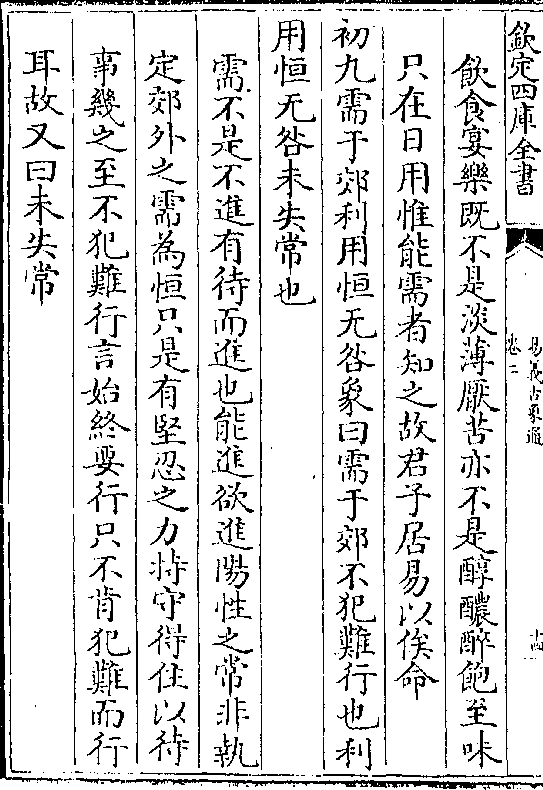 欽定四庫全書
易義古象通
卷二
十四
飲食宴樂既不是淡薄厭苦亦不是醇醲醉飽至味
只在日用惟能需者知之故君子居易以俟命
初九需于郊利用恒无咎象曰需于郊不犯難行也利
用恒无咎未失常也
需不是不進有待而進也能進欲進陽性之常非執
定郊外之需為恒只是有堅忍之力持守得住以待
事幾之至不犯難行言始終要行只不肯犯難而行
耳故又曰未失常